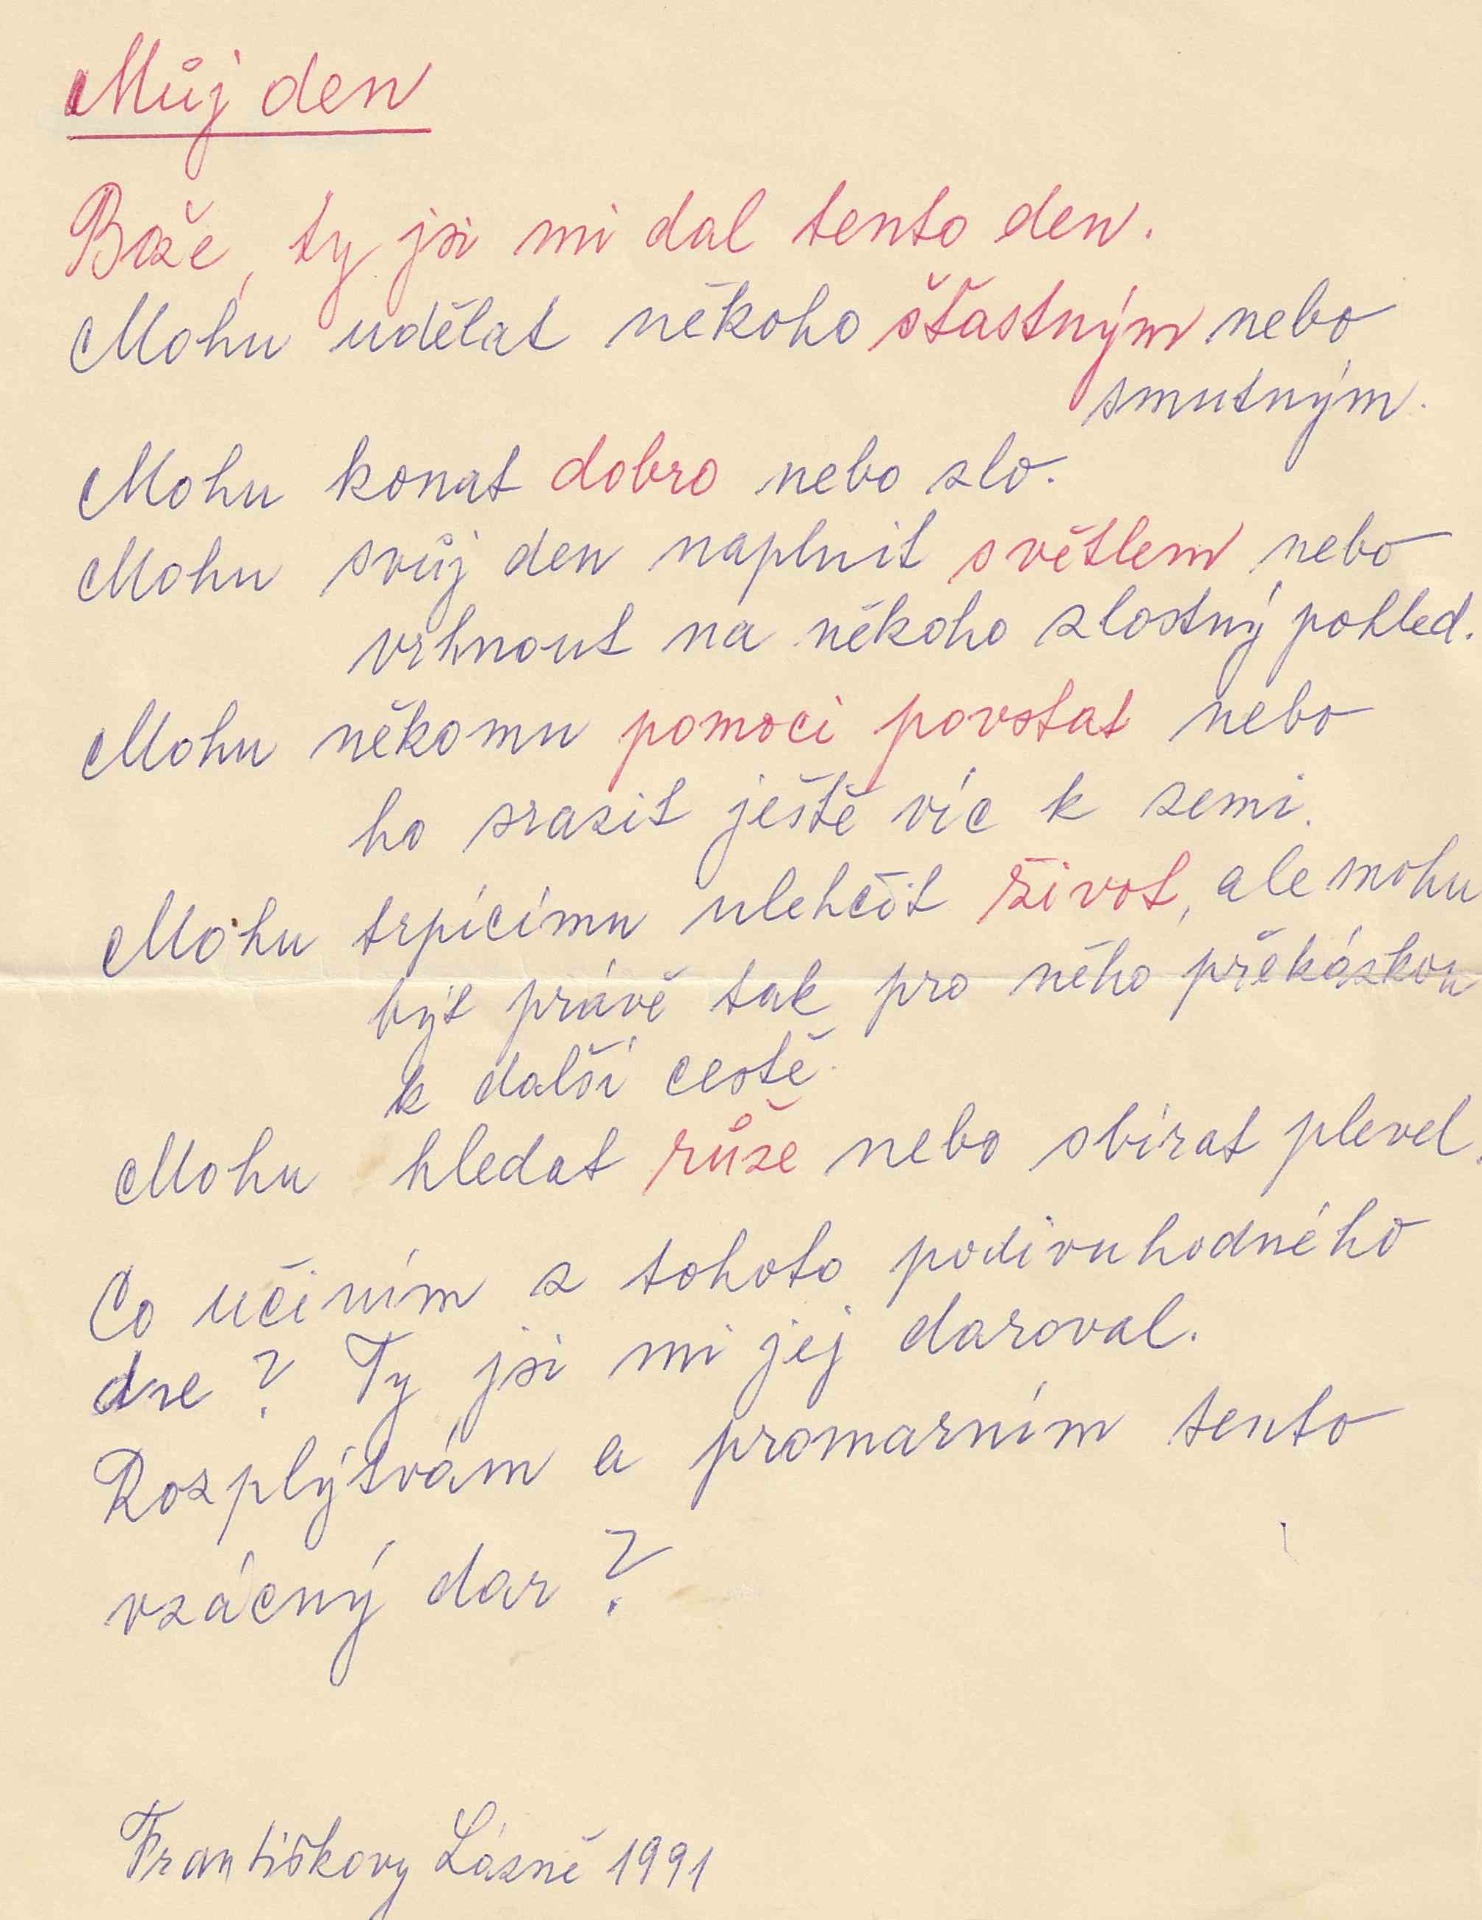 Můj den
Bože, ty jsi mi dal tento den.
Mohu udělat někoho šťastným nebo
smutným.
Mohu konat dobro nebo zlo.
Mohu svůj den naplnit světlem nebo
vrhnout na někoho zlostný pohled.
Mohu někomu pomoci povstat nebo
ho srazit ještě víc k zemi.
Mohu trpícímu ulehčit život, ale mohu
být právě tak pro něho překázkou
k další cestě.
Mohu hledat růže nebo sbírat plevel.
Co učiním z tohoto podivuhodného
dne? Ty jsi mi jej daroval.
Rozplýtvám a promarním tento
vzácný dar?
Františkovy Lázně 1991